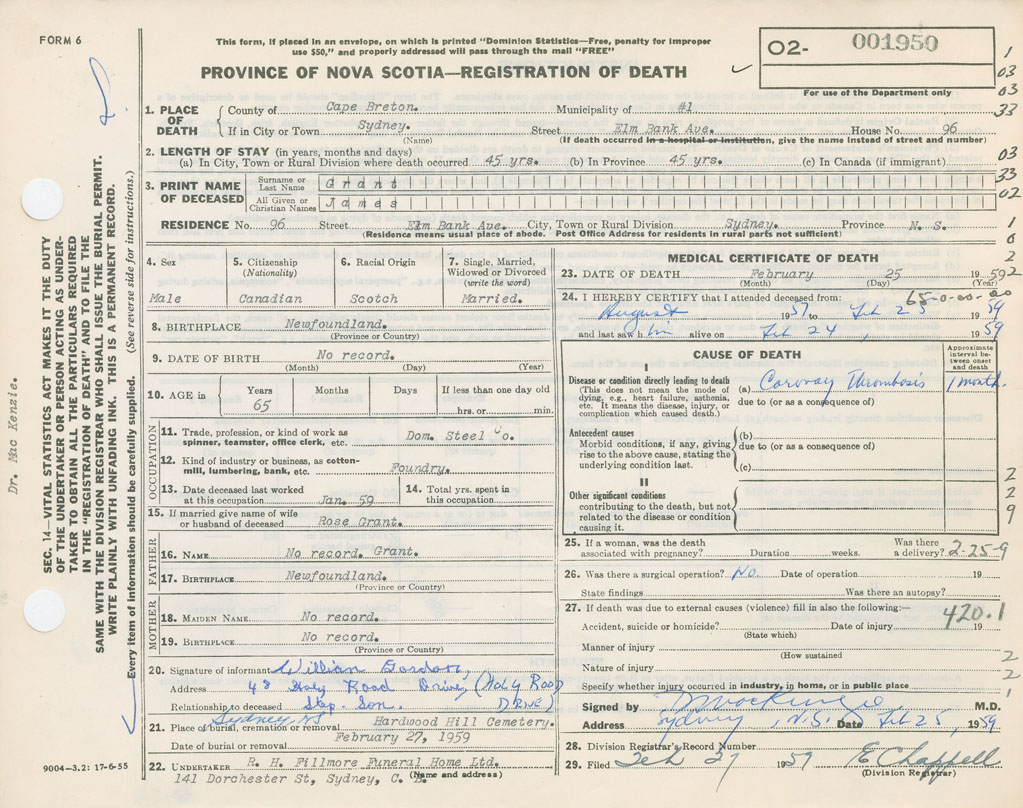 FORM 6
This form, if placed in an envelope, on which is printed "Dominion Statistics—Free, penalty for improper
use $50," and properly addressed will pass through the mail "FREE"
PROVINCE OF NOVA SCOTIA—REGISTRATION OF DEATH
O2- 001950
For use of the Department only
1
03
03
33
03
33
02
1
6
2
2
1. PLACE OF DEATH
County of Cape Breton. Municipality of #1
If in City or Town Sydney. Street Elm Bank Ave. House No. 96
(Name) (If death occurred in a hospital or institution, give the name instead of street and number)
2. LENGTH OF STAY (in years, months and days)
(a) In City, Town or Rural Division where death occurred 45 yrs. (b) In Province 45 yrs. (c) In Canada (if immigrant)
3. PRINT NAME OF DECEASED
Surname or Last Name Grant
All Given or Christian Names James
RESIDENCE No. 96 Street Elm Bank Ave. City, Town or Rural Division Sydney. Province N. S.
(Residence means usual place of abode. Post Office Address for residents in rural parts not sufficient)
4. Sex
Male
5. Citizenship
(Nationality)
Canadian
6. Racial Origin
Scotch
7. Single, Married,
Widowed or Divorced
(write the word)
Married.
8. BIRTHPLACE Newfoundland.
(Province or Country)
9. DATE OF BIRTH No record.
(Month) (Day) (Year)
10. AGE in
Years Months Days If less than one day old
65 hrs. or min.
OCCUPATION
11. Trade, profession, or kind of work as
spinner, teamster, office clerk, etc. Dom. Steel Co.
12. Kind of industry or business, as cotton-
mill, lumbering, bank, etc. Foundry.
13. Date deceased last worked
at this occupation Jan. 59
14. Total yrs. spent in
this occupation
15. If married give name of wife
or husband of deceased Rose Grant.
FATHER
16. NAME No record. Grant.
17. BIRTHPLACE Newfoundland.
(Province or Country)
MOTHER
18. MAIDEN NAME No record.
19. BIRTHPLACE No record.
(Province or Country)
20. Signature of informant William Gordon,
Address 48 Holy Road Drive, (HOLY ROOD
Relationship to deceased Step. Son. DRIVE)
Sydney, NS
21. Place of burial, cremation or removal Hardwood Hill Cemetery.
Date of burial or removal February 27, 1959
22. UNDERTAKER R. H. Fillmore Funeral Home Ltd.
(Name and address)
141 Dorchester St, Sydney, C. B.
MEDICAL CERTIFICATE OF DEATH
23. DATE OF DEATH February 25 1959
(Month) (Day) (Year)
65-0-00-00
24. I HEREBY CERTIFY that I attended deceased from:
August 1957 to Feb 25 1959
and last saw him alive on Feb 24, 1959
CAUSE OF DEATH
Approximate
interval be-
tween onset
and death
I
Disease or condition directly leading to death
(This does not mean the mode of
dying, e.g., heart failure, asthenia,
etc. It means the disease, injury, or
complication which caused death.)
(a) Coronay Thrombosis 1 month.
due to (or as a consequence of)
Antecedent causes
Morbid conditions, if any, giving
rise to the above cause, stating the
underlying condition last.
(b)
due to (or as a consequence of)
(c)
II
Other significant conditions
contributing to the death, but not
related to the disease or condition
causing it.
2
2
9
25. If a woman, was the death
associated with pregnancy? Duration weeks. Was there
a delivery? 2-25-9
26. Was there a surgical operation? No. Date of operation 19
State findings Was there an autopsy?
27. If death was due to external causes (violence) fill in also the following:—
420.1
Accident, suicide or homicide? Date of injury 19
(State which)
Manner of injury
(How sustained
Nature of injury
Specify whether injury occurred in industry, in home, or in public place
2
2
1
Signed by M.D.
Address Sydney, N.S. Date Feb 25, 1959
28. Division Registrar's Record Number
29. Filed Feb 27 1959 E Chappell
(Division Registrar)
SEC. 14—VITAL STATISTICS ACT MAKES IT THE DUTY
OF THE UNDERTAKER OR PERSON ACTING AS UNDER-
TAKER TO OBTAIN ALL THE PARTICULARS REQUIRED
IN THE "REGISTRATION OF DEATH" AND TO FILE THE
SAME WITH THE DIVISION REGISTRAR WHO SHALL ISSUE THE BURIAL PERMIT.
WRITE PLAINLY WITH UNFADING INK. THIS IS A PERMANENT RECORD.
Every item of information should be carefully supplied. (See reverse side for instructions.)
Dr. Mac Kenzie.
9004—3.2: 17-6-55